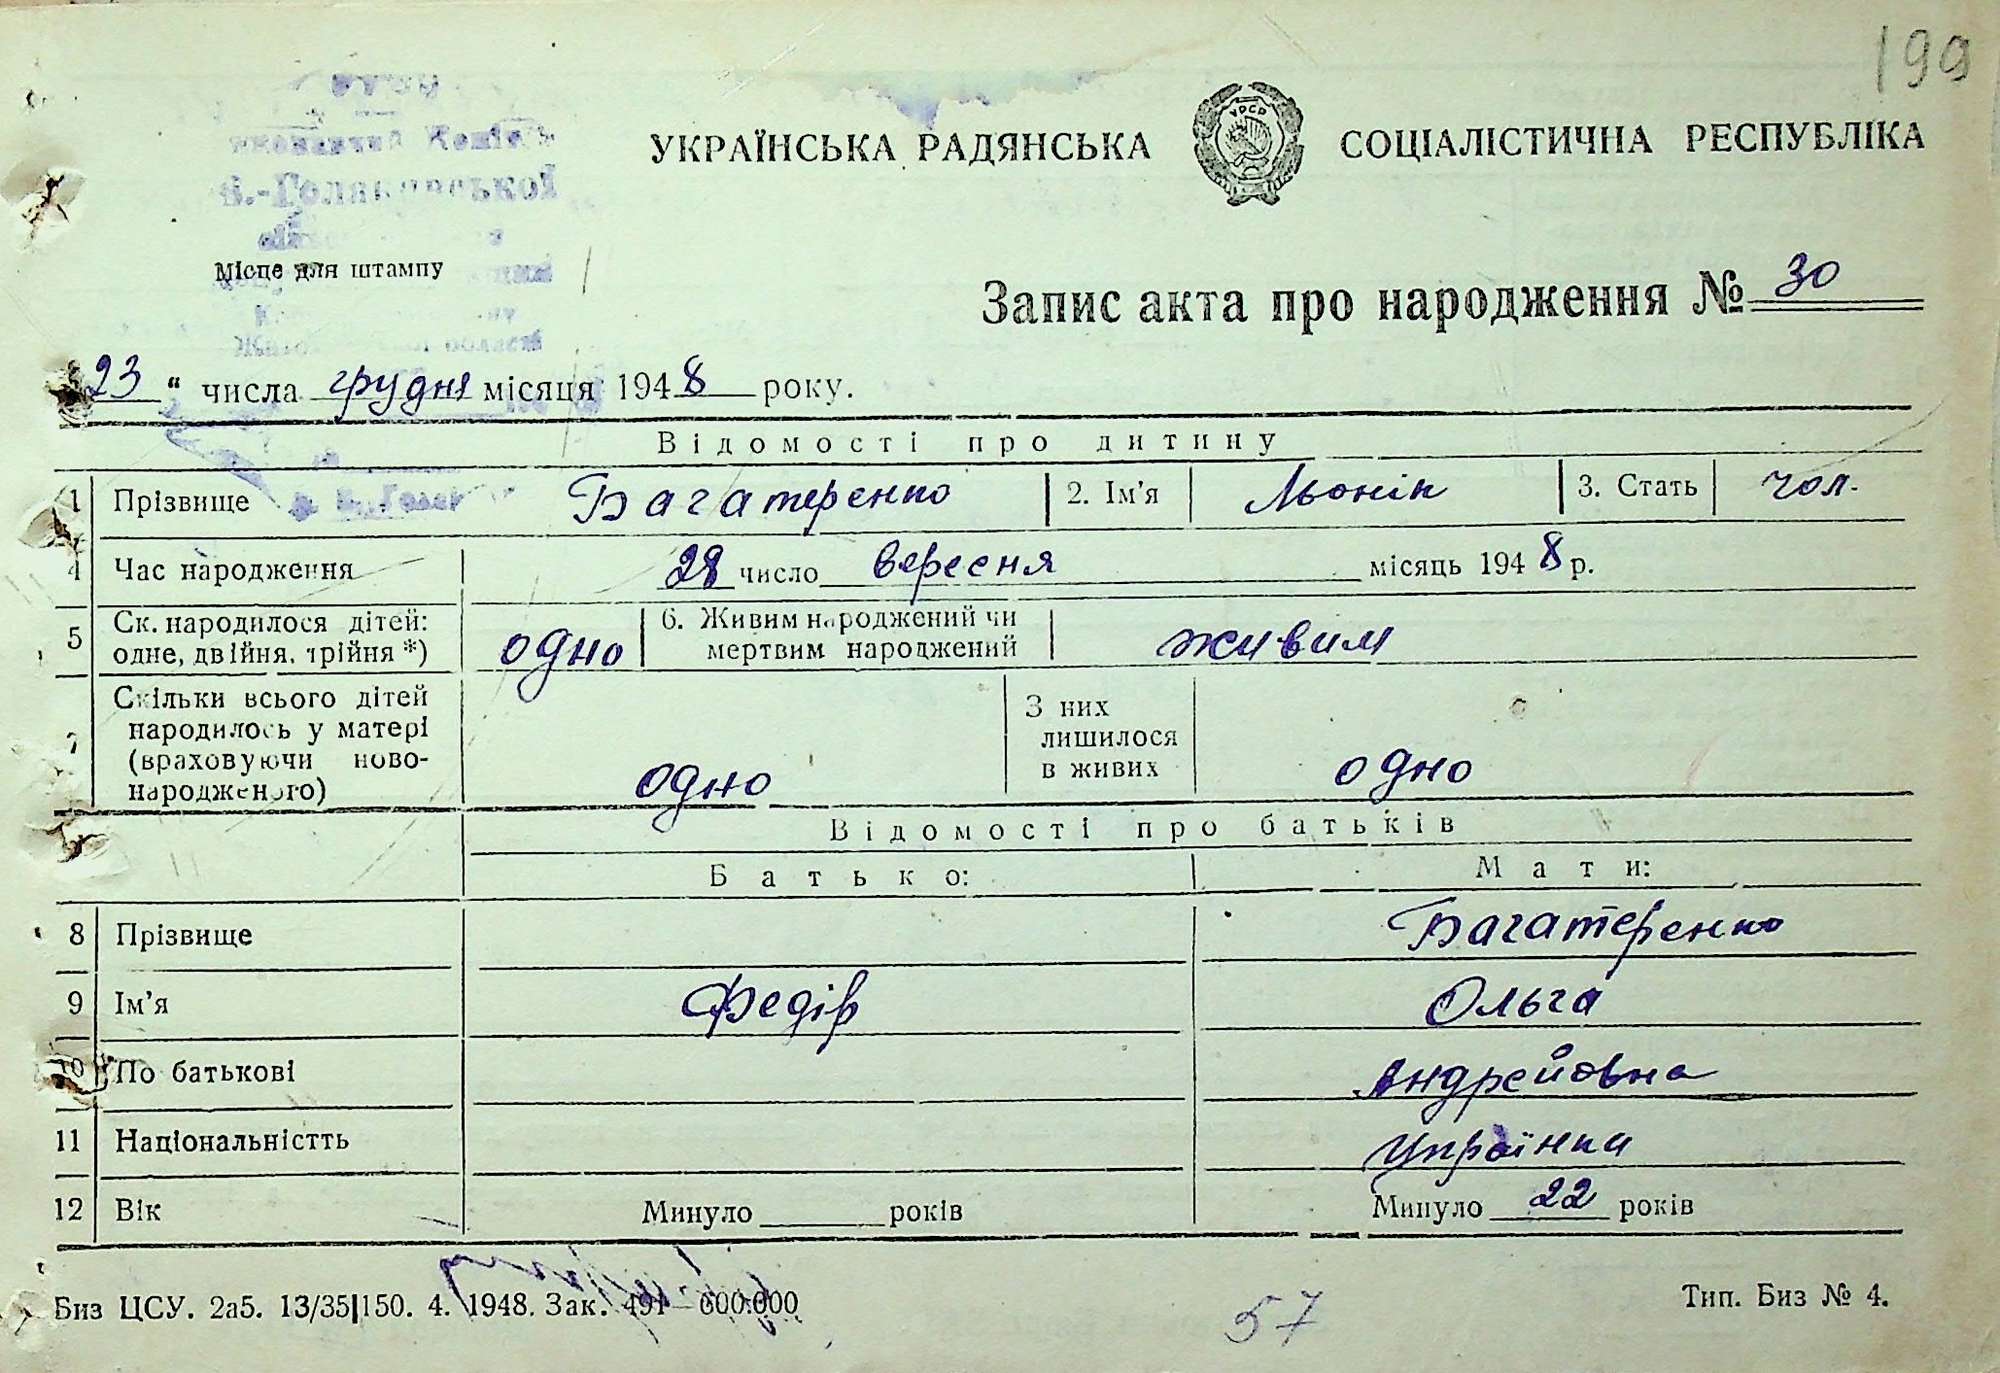 199
УКРАЇНСЬКА РАДЯНСЬКА СОЦІАЛІСТИЧНА РЕСПУБЛІКА
УРСР
Місце для штампу
області
Запис акта про народження № 30
23 " числа грудня місяця 1948 року.
Відомості про дитину
1 Прізвище Багатеренко 2. Ім'я Льонік 3. Стать чол.
4 Час народження 28 число вересня місяць 1948 р.
5 Ск. народилося дітей: одне, двійня, трійня *) одно 6. Живим народжений чи мертвим народжений живим
7 Скільки всього дітей народилось у матері (враховуючи ново-народженого) одно З них лишилося в живих одно
Відомості про батьків
Батько: Мати:
8 Прізвище Багатеренко
9 Ім'я Федір Ольга
10 По батькові Андрейовна
11 Національністть Українка
12 Вік Минуло років Минуло 22 років
Биз ЦСУ. 2а5. 13/35|150. 4. 1948. Зак. 491—600.000
57
Тип. Биз № 4.